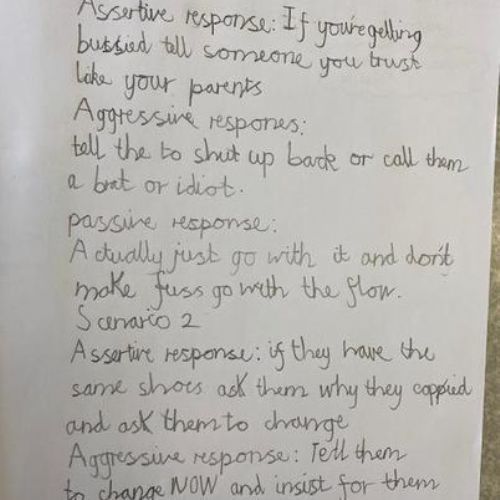 Assertive response: If you're getting
bussied tell someone you trust
like your parents
Aggressive respones:
tell the to shut up back or call them
a brat or idiot.
passive response:
Actually just go with it and don't
make fuss go with the flow.
Scenario 2
Assertive response: if they have the
same shoes ask them why they coppied
and ask them to change
Aggressive response: Tell them
to change NOW and insist for them